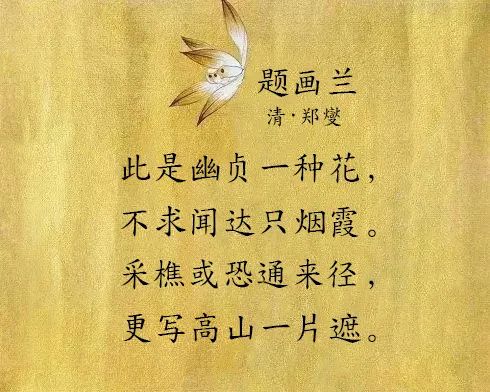 题画兰
清·郑燮
此是幽贞一种花，
不求闻达只烟霞。
采樵或恐通来径，
更写高山一片遮。